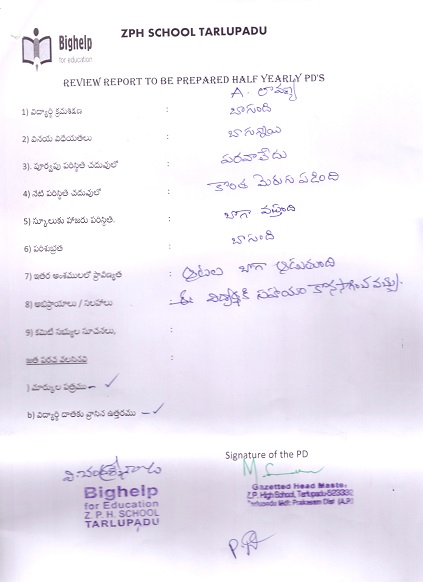 Bighelp
for education
ZPH SCHOOL TARLUPADU
REVIEW REPORT TO BE PREPARED HALF YEARLY PD'S
A. లావణ్య
1) విద్యార్థి క్రమశిక్షణ : బాగుంది
2) వినయ విధేయతలు : బాగున్నాయి
3). పూర్వపు పరిస్థితి చదువులో : పరవాలేదు
4) నేటి పరిస్థితి చదువులో : కొంత మెరుగు పడింది
5) స్కూలుకు హాజరు పరిస్థితి. : బాగా వస్తుంది
6) పరిశుభ్రత : బాగుంది
7) ఇతర అంశములలో ప్రావీణ్యత : ఆటలు బాగా ఆడుతుంది
8) అభిప్రాయాలు / సలహాలు : ఈ విద్యార్థికి సహాయం కొనసాగించవచ్చు.
9) కమిటి సభ్యుల సూచనలు, :
జత పరచ వలసినవి
) మార్కుల పత్రము – ✓
b) విద్యార్థి దాతకు వ్రాసిన ఉత్తరము – ✓
Signature of the PD
Bighelp
for Education
Z. P. H. SCHOOL
TARLUPADU
Gazetted Head Master
Z.P. High School, Tarlupadu-523332
Tarlupadu Mdl: Prakasam Dist (A.P.)